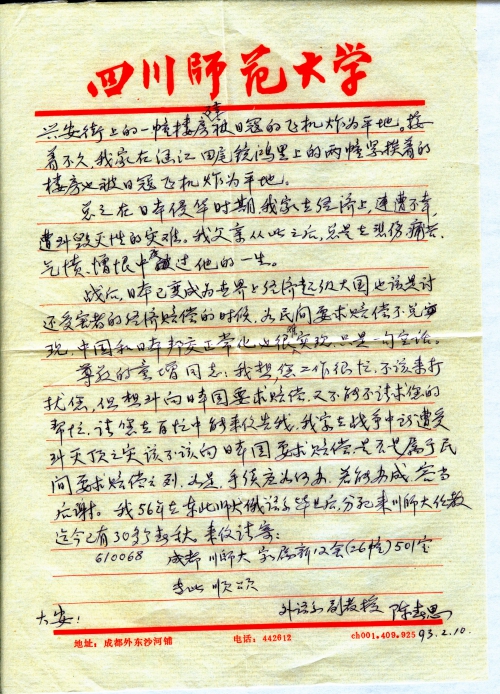 四川师范大学
兴安街上的一幢楼房遭被日寇的飞机炸为平地。接
着不久,我家在涵江田尾铳鸿里上的两幢紧挨着的
楼房也被日寇飞机炸为平地。
总之在日本侵华时期,我家在经济上,连遭不幸,
遭到毁灭性的灾难。我父亲从此之后,总是在悲伤、痛苦、
气愤、憎恨中渡过他的一生。
战后,日本已变成为世界上经济超级大国也该是讨
还受害者的经济赔偿的时候,若民间要求赔偿不兑实
现,中国和日本邦交正常化也很难实现,只是一句空话。
尊敬的童增同志,我想,您工作很忙,不该来打
扰您,但想到向日本国要求赔偿,又不能不请求您的
帮忙,请您在百忙中能来信告我,我家在战争中所遭受
到灭顶之灾该不该向日本国要求赔偿,是否也属于民
间要求赔偿之列,若是,手续应如何办,若能办成,定当
后谢。我56年在东北师大俄语系毕业后,分配来川师大任教
迄今已有30多个春秋,来信请寄:
610068 成都 川师大 家属新区舍(26幢)501室
专此 顺颂
大安!
外语系副教授 陈春思
93.2.10.
地址:成都外东沙河铺 电话:442612 ch001.409.925